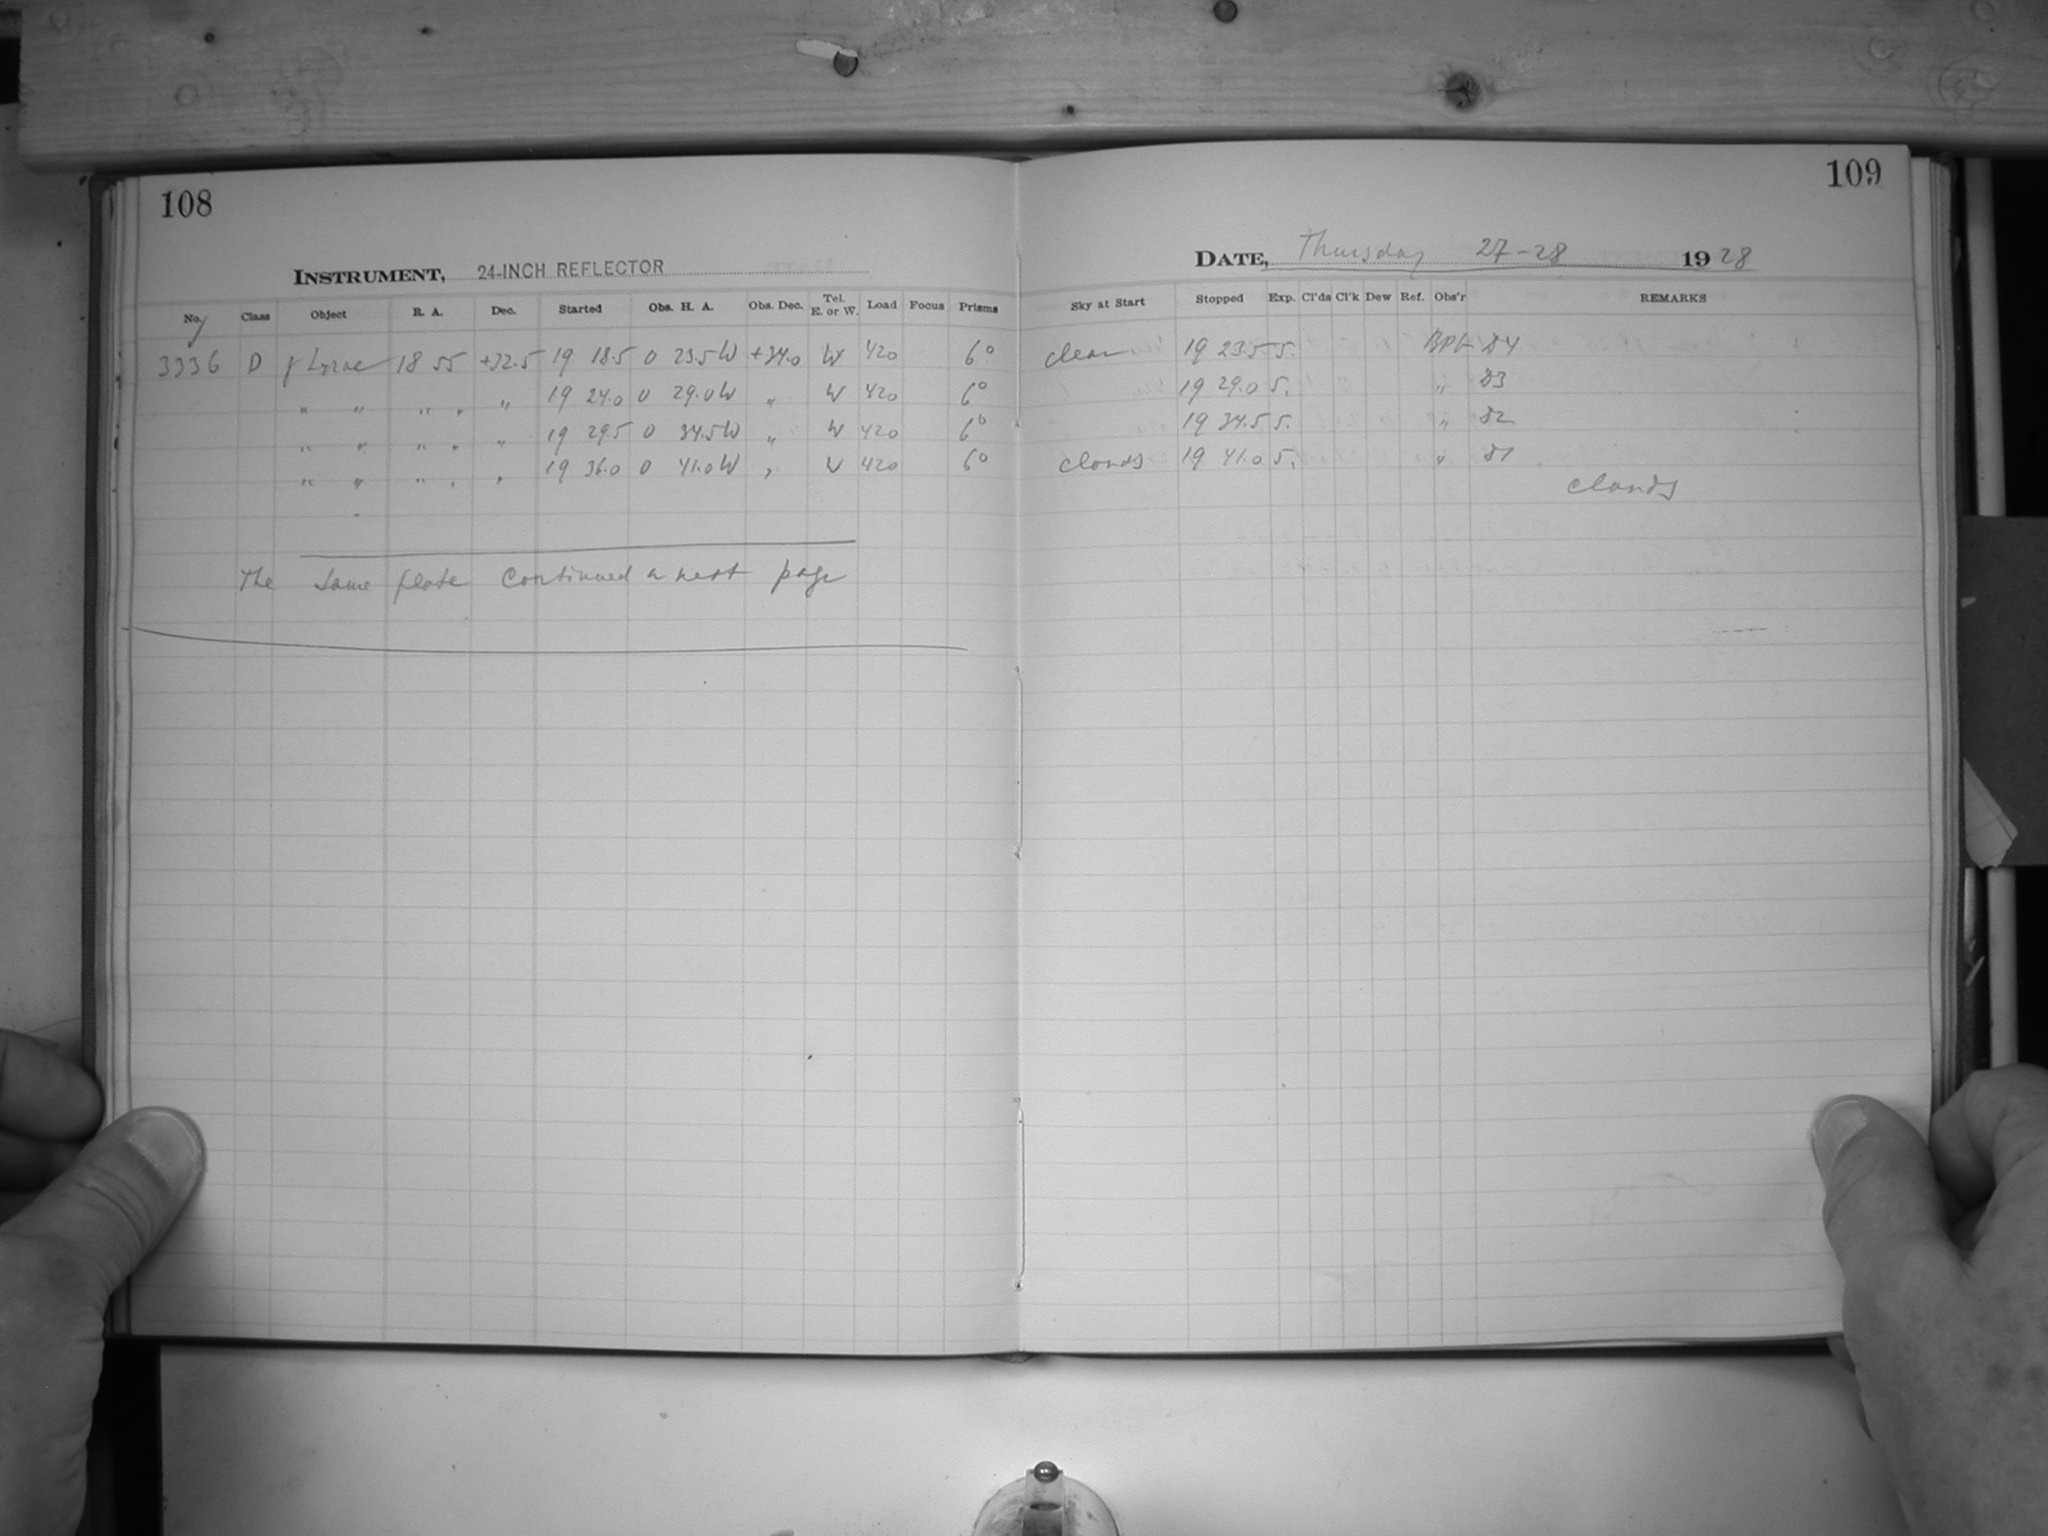 108
INSTRUMENT, 24-INCH REFLECTOR
No. Class Object R. A. Dec. Started Obs. H. A. Obs. Dec. Tel. E. or W. Load Focus Prisms
3336 D γ Lyrae 18 55 +32.5 19 18.5 0 23.5 W +34.0 W 420 6°
" " " " " 19 24.0 0 29.0 W " W 420 6°
" " " " " 19 29.5 0 34.5 W " W 420 6°
" " " " " 19 36.0 0 41.0 W " W 420 6°
The same plate continued on next page
109
DATE, Thursday 27-28 1928
Sky at Start Stopped Exp. Cl'ds Cl'k Dew Ref. Obs'r REMARKS
clear 19 23.5 5. 84
19 29.0 5. " 83
19 34.5 5. " 82
clouds 19 41.0 5. " 81
clouds